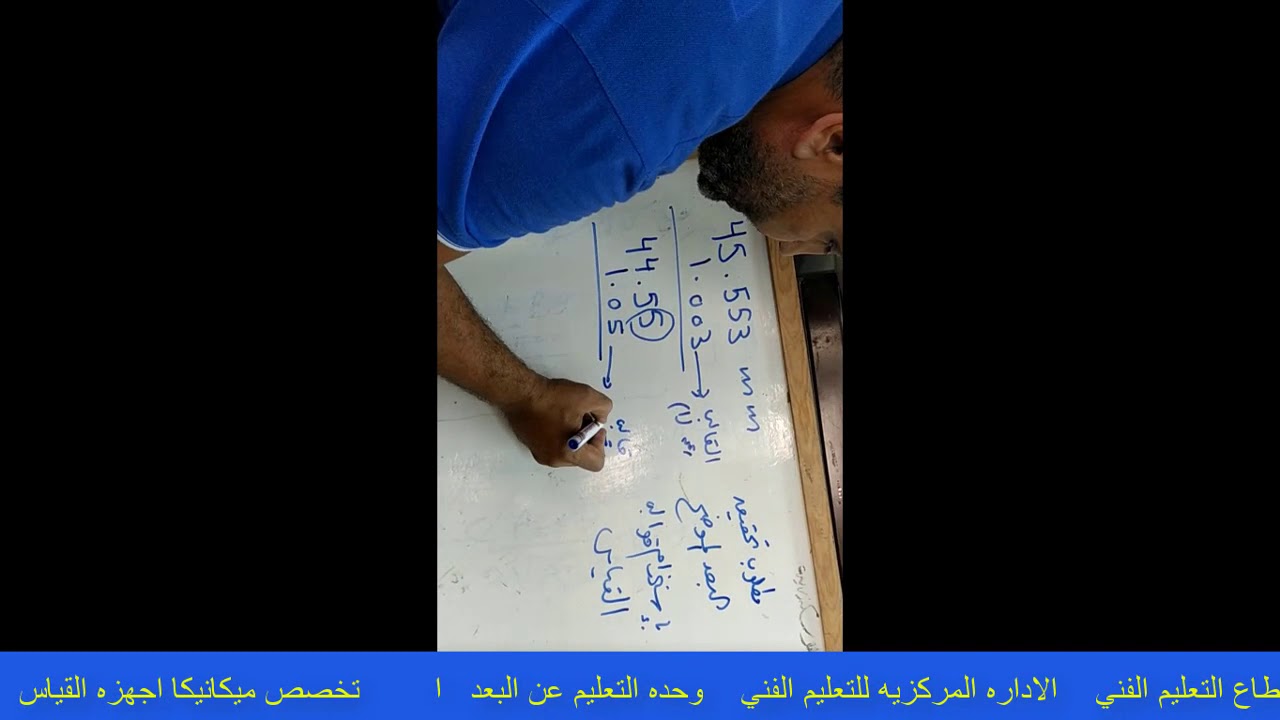 45.553 mm
1.003 → القالب
رقم (1)
44.55
1.05 → قالب
مطلوب تحقيق
البعد الموضح
بإستخدام قوالب
القياس
طاع التعليم الفني الاداره المركزيه للتعليم الفني وحده التعليم عن البعد ا تخصص ميكانيكا اجهزه القياس